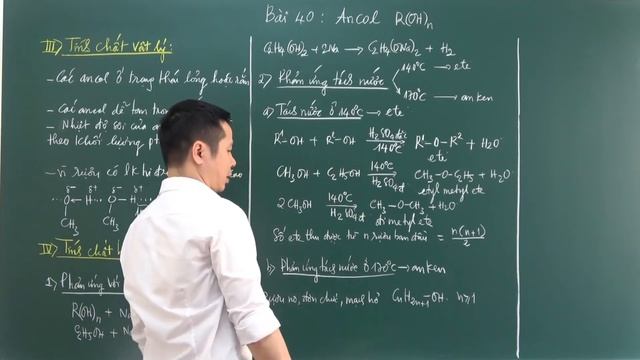 Bài 40: Ancol R(OH)n
III) Tính chất vật lý:
- Các ancol ở trạng thái lỏng hoặc rắn
- Các ancol dễ tan tron
- Nhiệt độ sôi của an
theo khối lượng pt
- vì rượu có lk hi đr
δ- δ+ δ- δ+
O - H ... O - H
CH3 CH3
IV) Tính chất h
1) Phản ứng với
R(OH)n + Na
C2H5OH + Na
C2H4(OH)2 + 2Na → C2H4(ONa)2 + H2
2) Phản ứng tách nước 140°C → ete
170°C → anken
a) Tách nước ở 140°C → ete
R1-OH + R2-OH H2SO4đặc 140°C → R1-O-R2 + H2O
ete
CH3OH + C2H5OH 140°C H2SO4đ → CH3-O-C2H5 + H2O
etyl metyl ete
2CH3OH 140°C H2SO4đ → CH3-O-CH3 + H2O
đi metyl ete
Số ete thu được từ n rượu ban đầu = n(n+1)/2
b) Phản ứng tách nước ở 170°C → anken
no, đơn chức, mạch hở CnH2n+1-OH. n≥1